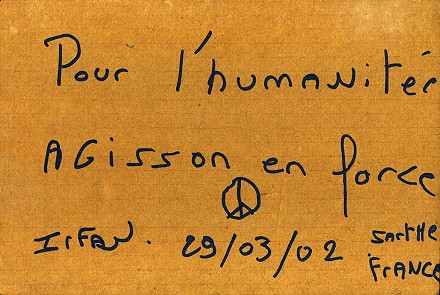 Pour l'humanitée
AGisson en force
IrFAN. 29/03/02 SArtHe
FrANCE